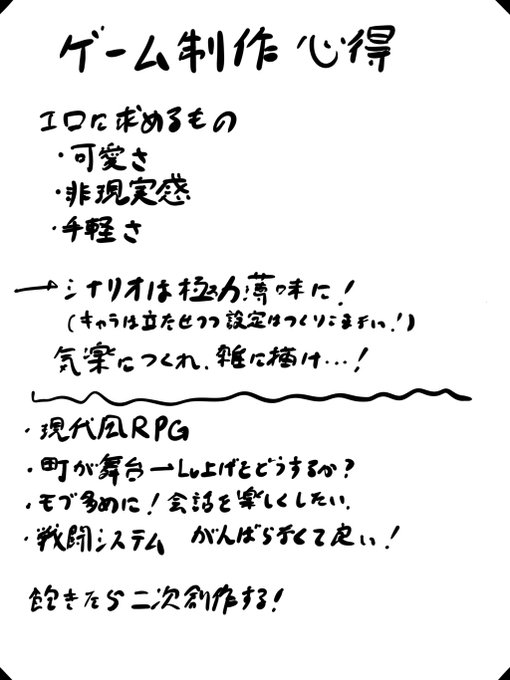 ゲーム制作 心得
エロに求めるもの
・可愛さ
・非現実感
・手軽さ
→シナリオは極力薄味に！
(キャラは立たせつつ設定はつくりこまずに！)
気楽につくれ、雑に描け…！
・現代風RPG
・町が舞台→Lv上げをどうするか？
・モブ多めに！会話を楽しくしたい.
・戦闘システム がんばらなくて良い！
飽きたら二次創作する！